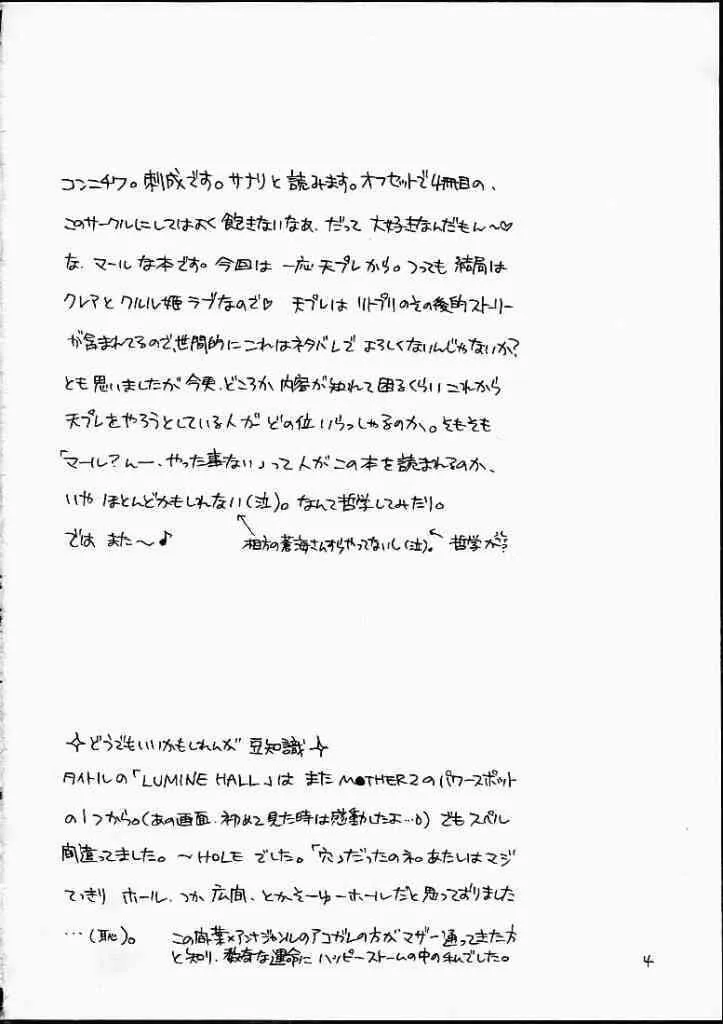 コンニチワ。刺成です。サナリと読みます。オフセットで4冊目の、
このサークルにしてはよく飽きないなぁ、だって大好きなんだもん〜♡
な、マールな本です。今回は一応天プレから。つっても結局は
クレアとクルル姫ラブなので♡ 天プレはリトプリのその後的ストーリー
が含まれてるので、世間的にこれはネタバレでよろしくないんじゃないか?
とも思いましたが今更、どころか内容が知れて困るくらいこれから
天プレをやろうとしている人がどの位いらっしゃるのか。そもそも
「マール?んー、やった事ない」って人がこの本を読まれるのか、
いやほとんどかもしれない(泣)。なんて哲学してみたり。
では また〜♪
相方の蒼海さんすらやってないし(泣)。 哲学か?
✧どうでもいいかもしれんが 豆知識✧
タイトルの「LUMINE HALL」は また MOTHER2のパワースポット
の1つから。(あの画面、初めて見た時は感動したよ…) でもスペル
間違ってました。〜HOLEでした。「穴」だったのネ。あたしはマジ
てっきり ホール、つか広間、とかそーゆーホールだと思っておりました
…(恥)。
この商業×アンナジャンルのアコガレの方がマザー通ってきた方
と知り、数奇な運命にハッピーストームの中の私でした。
4